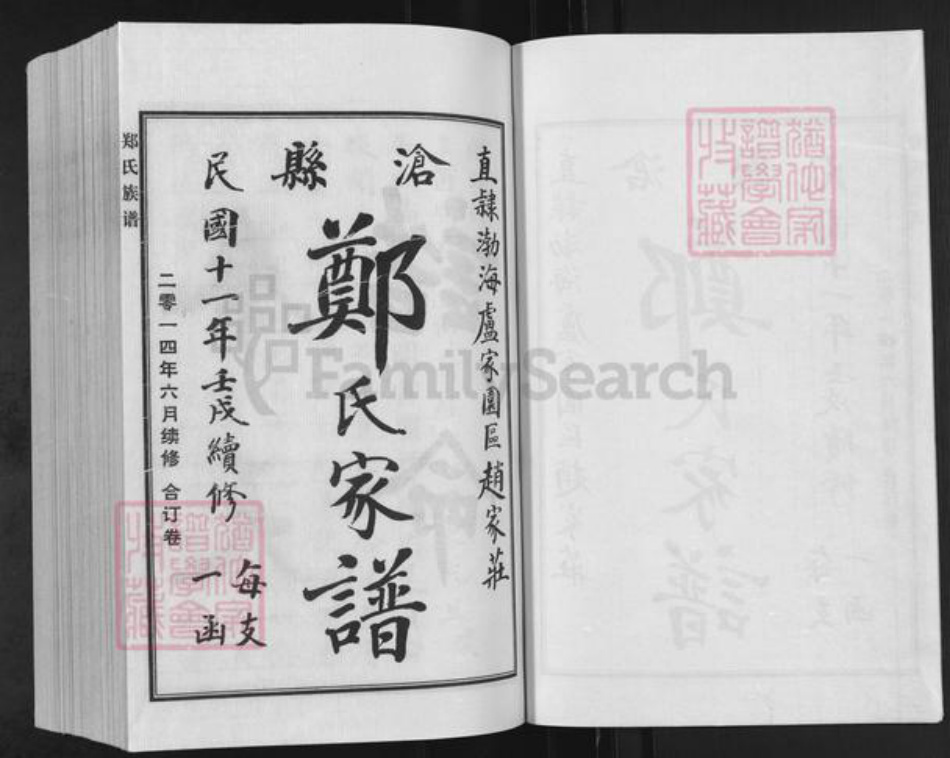 直隸渤海盧家園區趙家莊
滄縣
鄭氏家譜
民國十一年壬戌續修
每支一函
二零一四年六月续修 合订卷
郑氏族谱
FamilySearch
譜學會
收藏